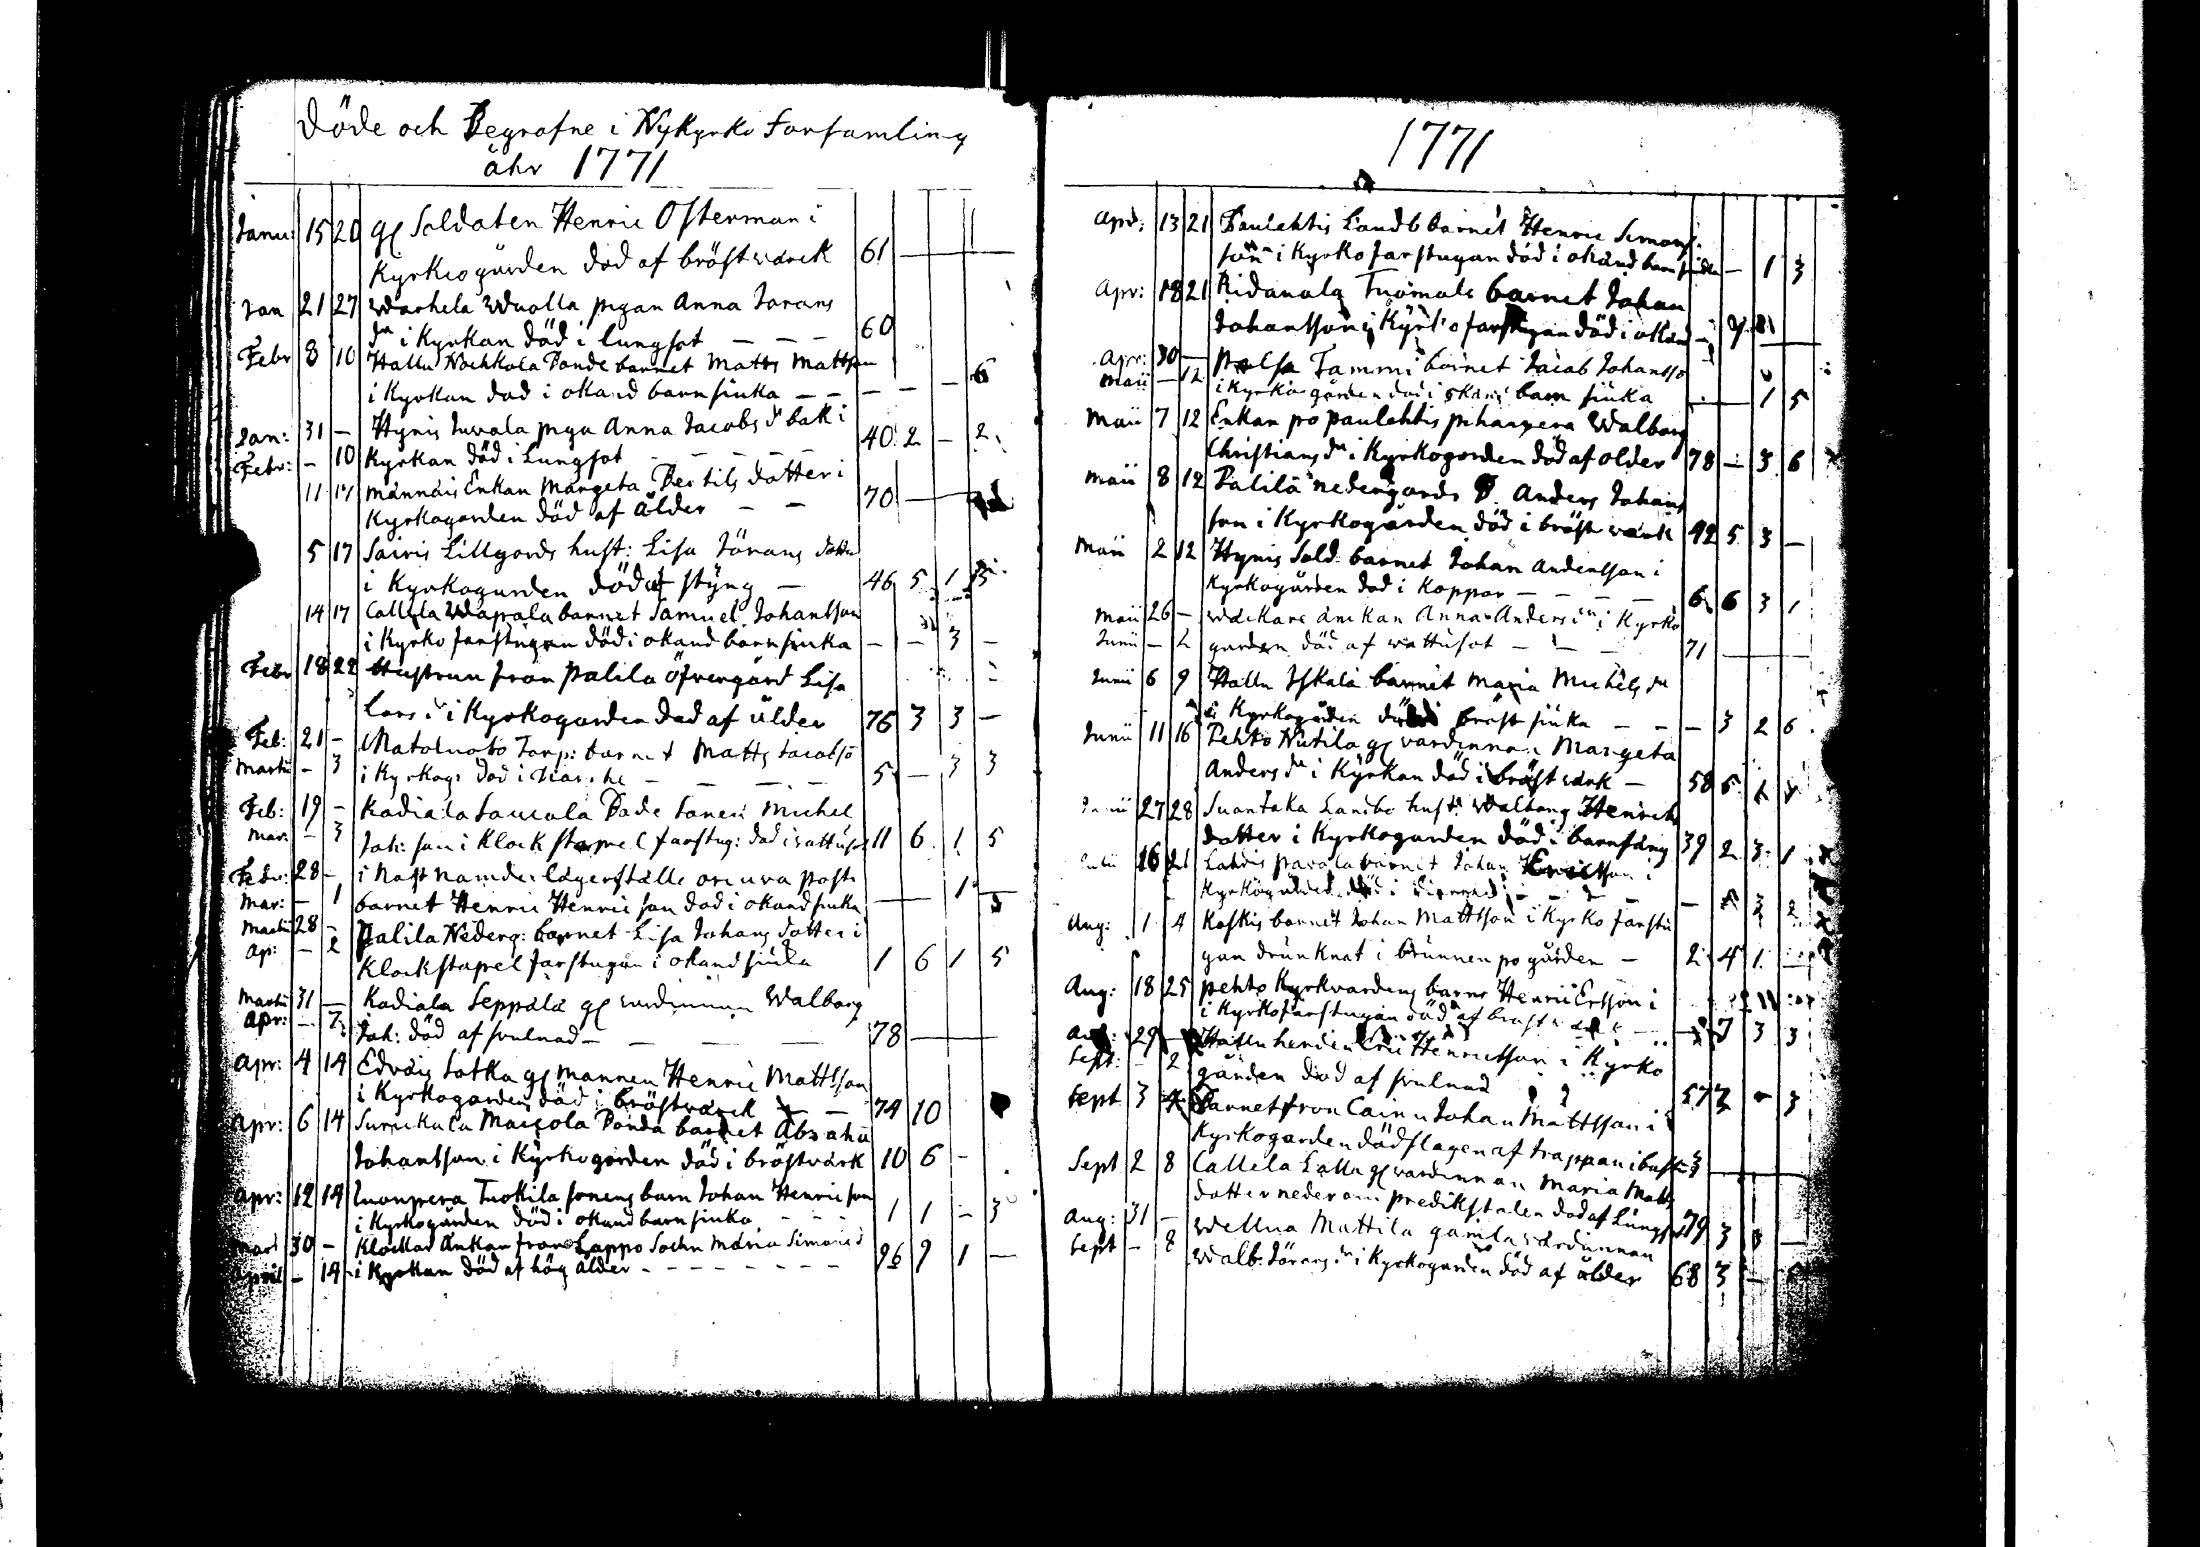 Döde och Begrafne i Nykyrko Forsamling
åhr 1771
Janu: 15 20 gl Soldaten Henric Osterman i
Kyrkiogården död af bröstwärck 61
Jan 21 27 Warhela Wualla pigan Anna Jörans
dr i Kyrkan död i lungsot — — — 60
Febr 8 10 Hallu Nochkola Bonde barnet Matts Mattson
i Kyrkan död i okänd barnsiuka — — — — 6
Jan: 31 — Hynis Juvala piga Anna Jacobs dr bak i
Febr: — 10 Kyrkan död i Lungsot 40 2 — 2
11 17 Männäis Enkan Margeta Bertils dotter i
Kyrkogården död af ålder — — 70
5 17 Sairis Lillgårds hust: Lisa Jörans dotter
i Kyrkogården död af styng — 46 5 1 5
14 17 Callela Wapala barnet Samuel Johansson
i Kyrko farstugan död i okänd barnsiuka — — 3 —
Febr 18 22 Hustrun från Palila öfvergård Lisa
Lars dr i Kyrkogården död af ålder 76 3 3 —
Feb: 21 — Torp: barnet Matts Jacobso
Martii — 3 i Kyrkog: död i — — — 5 — 3 3
Feb: 19 — Kadiala Bode Sonen Michel
Mar: — 3 Joh: son i Klockstapel farstug: död i wattusot 11 6 1 5
Febr: 28 — i Näst nämde lägerställe
Mar: — 1 barnet Henric Henricson död i okänd siuka — 1 —
Martii 28 — Palila Nederg: barnet Lisa Johans dotter i
Ap: — 2 Klockstapel farstugan i okänd siuka 1 6 1 5
Martii 31 — Kadiala Seppälä gl wärdinnan Walborg
Apr: — 7 Joh: död af svulnad — — — — 78
Apr: 4 14 Edväis Sotka gl mannen Henric Mattsson
i Kyrkogården död i bröstwärck — 74 10
Apr: 6 14 Bonda barnet Abraha
Johansson i Kyrkogården död i bröstwärk 10 6 —
Apr: 12 14 Tuokila sonens barn Johan Henricson
i Kyrkogården död i okänd barnsiuka — — — 1 1 — 3
Mart 30 — Klockar Änkan från Lappo Sochn Maria Simons d
April — 14 i Kyrkan död af hög ålder — — — — 96 9 1 —
1771
Apr: 13 21 Paulahtis Landb barnet Henric Simons
son i Kyrko farstugan död i okänd barnsiuka — 1 3
Apr: 18 21 Ridanala Tuomala barnet Johan
Johansson i Kyrko farstugan död i okänd
Apr: 30 — Tammi barnet Jacob Johansso
Maii — 12 i Kyrko gården död i okänd barn siuka — 1 5
Maii 7 12 Enkan på Paulahtis Walborg
Christians dr i Kyrkogården död af ålder 78 — 3 6
Maii 8 12 Palila nedergårds B. Anders Johans
son i Kyrkogården död i bröst wärk 42 5 3 —
Maii 2 12 Hynis Sold. barnet Johan Andersson i
Kyrkogården död i Koppor — — — 6 6 3 1
Maii 26 — Wackare änckan Anna Anders dr i Kyrko
Junii — 2 gården död af wattusot — — — 71
Junii 6 9 Hallu Iskala barnet Maria Michels dr
i Kyrkogården död i bröst siuka — — — 3 2 6
Junii 11 16 Pehto Nutila gl värdinnan Margeta
Anders dr i Kyrkan död i bröst wärk — 58 5
Junii 27 28 Suontaka Landbo hustr Walborg Henrichs
dotter i Kyrkogården död i barnsäng 39 2 3 1
Julii 16 21 barnet Johan Ericsson i
Kyrkogården död i
Aug: 1 4 Koskis barnet Johan Mattsson i Kyrko farstu
gan drunknat i brunnen på gården — 2 4 1 —
Aug: 18 25 Pehto Kyrkvärdens barn Henric Ersson i
i Kyrkofarstugan död af bröst — 7 3 3
Aug: 29 — Henricsson i Kyrko
Sept: — 2 gården död af svulnad 57 — 3
Sept 3 Barnet från Cainu Johan Mattsson i
Kyrkogården dödslagen af trappan i
Sept 2 8 Callela Lalla gl wärdinnan Maria Matts
dotter neder om predikstolen död af Lungsot 79 3 —
Aug: 31 — Wellua Mattila gamla wärdinnan
Sept — 8 Walb: Jörans dr i Kyrkogården död af ålder 68 3 —